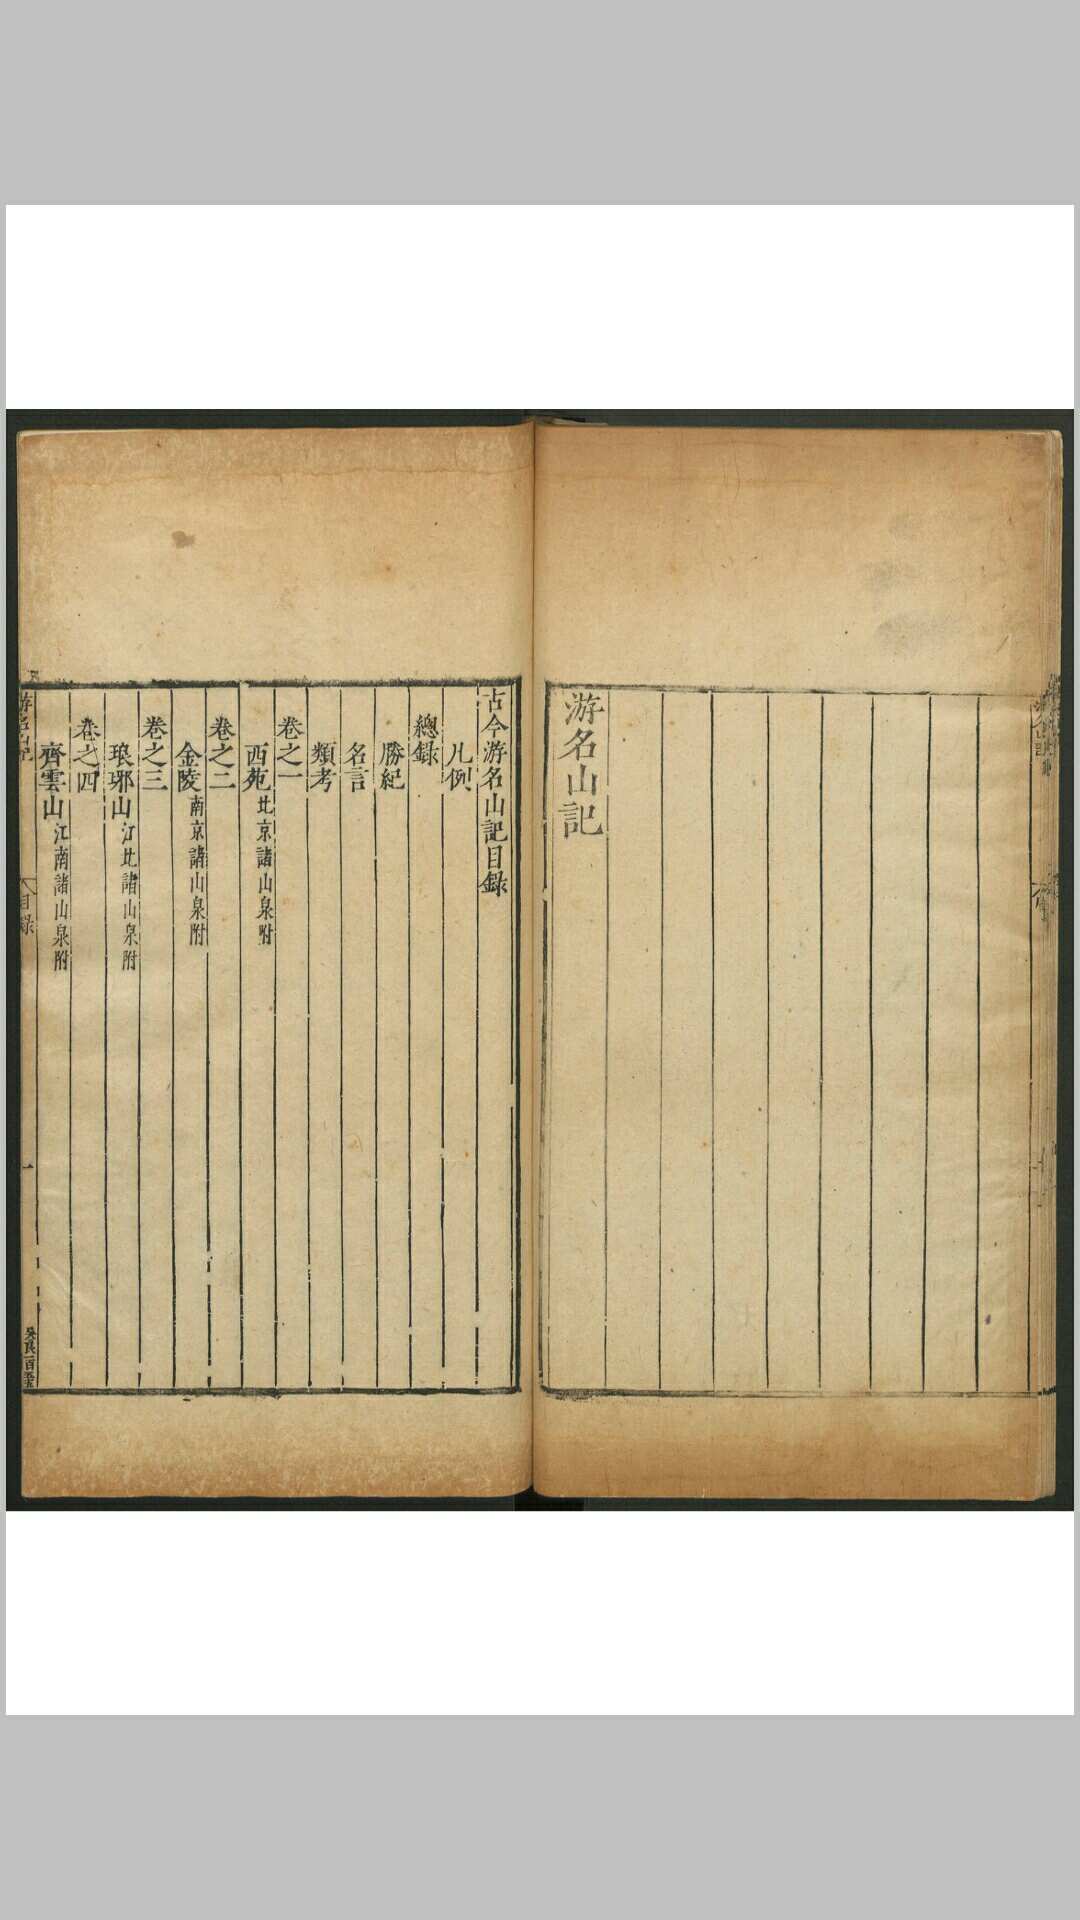 游名山記
古今游名山記目錄
凡例
總錄
勝紀
名言
類考
卷之一
西苑北京諸山泉附
卷之二
金陵南京諸山泉附
卷之三
琅琊山江北諸山泉附
卷之四
齊雲山江南諸山泉附
游名山記
目錄
一